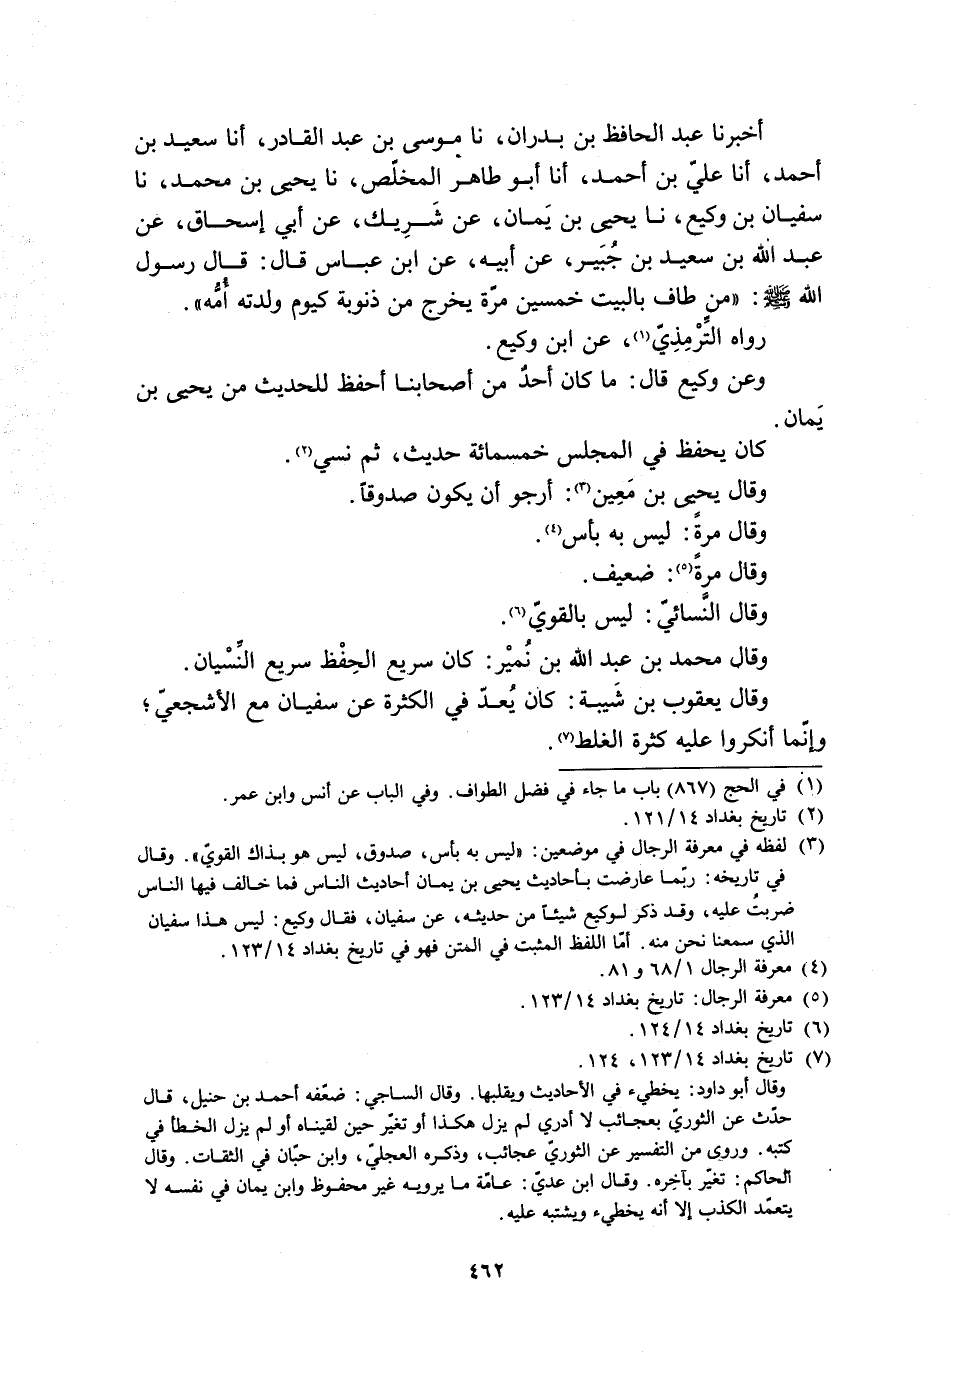 أخبرنا عبد الحافظ بن بدران، نا موسى بن عبد القادر، أنا سعيد بن
أحمد، أنا عليّ بن أحمد، أنا أبو طاهر المخلّص، نا يحيى بن محمد، نا
سفيان بن وكيع، نا يحيى بن يَمان، عن شَرِيك، عن أبي إسحاق، عن
عبد الله بن سعيد بن جُبَير، عن أبيه، عن ابن عباس قال: قال رسول
الله ﷺ: «من طاف بالبيت خمسين مرّة يخرج من ذنوبة كيوم ولدته أُمُّه».
رواه التِّرْمِذِيّ(١)، عن ابن وكيع.
وعن وكيع قال: ما كان أحدٌ من أصحابنا أحفظ للحديث من يحيى بن
يَمان.
كان يحفظ في المجلس خمسمائة حديث، ثم نسي(٢).
وقال يحيى بن مَعِين(٣): أرجو أن يكون صدوقاً.
وقال مرةً: ليس به بأس(٤).
وقال مرةً(٥): ضعيف.
وقال النَّسائيّ: ليس بالقويّ(٦).
وقال محمد بن عبد الله بن نُميْر: كان سريع الحِفْظ سريع النِّسْيان.
وقال يعقوب بن شَيبة: كان يُعدّ في الكثرة عن سفيان مع الأشجعيّ؛
وإنّما أنكروا عليه كثرة الغلط(٧).
(١) في الحج (٨٦٧) باب ما جاء في فضل الطواف. وفي الباب عن أنس وابن عمر.
(٢) تاريخ بغداد ١٢١/١٤.
(٣) لفظه في معرفة الرجال في موضعين: «ليس به بأس، صدوق، ليس هو بذاك القويّ». وقال
في تاريخه: ربّما عارضت بأحاديث يحيى بن يمان أحاديث الناس فما خالف فيها الناس
ضربتُ عليه، وقد ذكر لوكيع شيئاً من حديثه، عن سفيان، فقال وكيع: ليس هذا سفيان
الذي سمعنا نحن منه. أمّا اللفظ المثبت في المتن فهو في تاريخ بغداد ١٢٣/١٤.
(٤) معرفة الرجال ٦٨/١ و٨١.
(٥) معرفة الرجال: تاريخ بغداد ١٢٣/١٤.
(٦) تاريخ بغداد ١٢٤/١٤.
(٧) تاريخ بغداد ١٢٣/١٤، ١٢٤.
وقال أبو داود: يخطيء في الأحاديث ويقلبها. وقال الساجي: ضعّفه أحمد بن حنبل، قال
حدّث عن الثوريّ بعجائب لا أدري لم يزل هكذا أو تغيّر حين لقيناه أو لم يزل الخطأ في
كتبه. وروى من التفسير عن الثوريّ عجائب، وذكره العجليّ، وابن حبّان في الثقات. وقال
الحاكم: تغيّر بآخره. وقال ابن عديّ: عامّة ما يرويه غير محفوظ وابن يمان في نفسه لا
يتعمّد الكذب إلا أنه يخطيء ويشتبه عليه.
٤٦٢